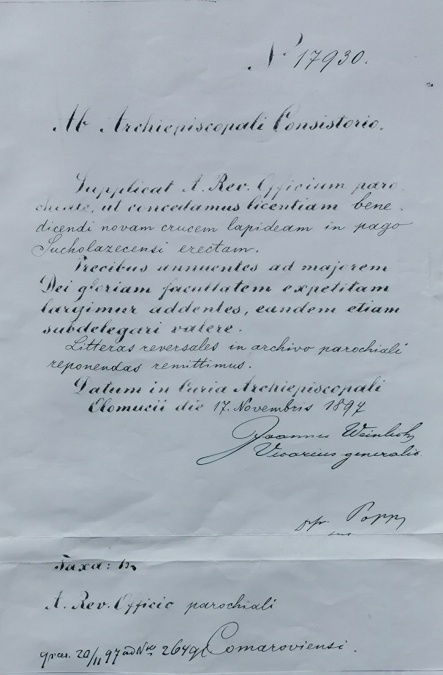 № 17930.
Ab Archiepiscopali Consistorio.
Supplicat A. Rev. Officium paro-
chiale, ut concedamus licentiam bene
dicendi novam crucem lapideam in pago
Sucholazecensi erectam.
Precibus annuentes ad majorem
Dei gloriam facultatem expetitam
largimur addentes, eandem etiam
subdelegari valere.
Litteras reversales in archivo parochiali
reponendas remittimus.
Datum in Curia Archiepiscopali
Olomucii die 17. Novembris 1897
Joannes Weinlich
Vicarius generalis
Popp
Taxa:
A. Rev. Officio parochiali
praes. 20/11 97 ad Nro 264
Comaroviensi.